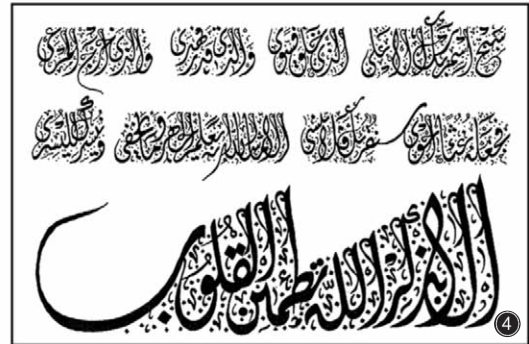 سبح اسم ربك الأعلى الذي خلق فسوى والذي قدر فهدى والذي أخرج المرعى
فجعله غثاء أحوى سنقرئك فلا تنسى إلا ما شاء الله إنه يعلم الجهر وما يخفى ونيسرك لليسرى
ألا بذكر الله تطمئن القلوب
4